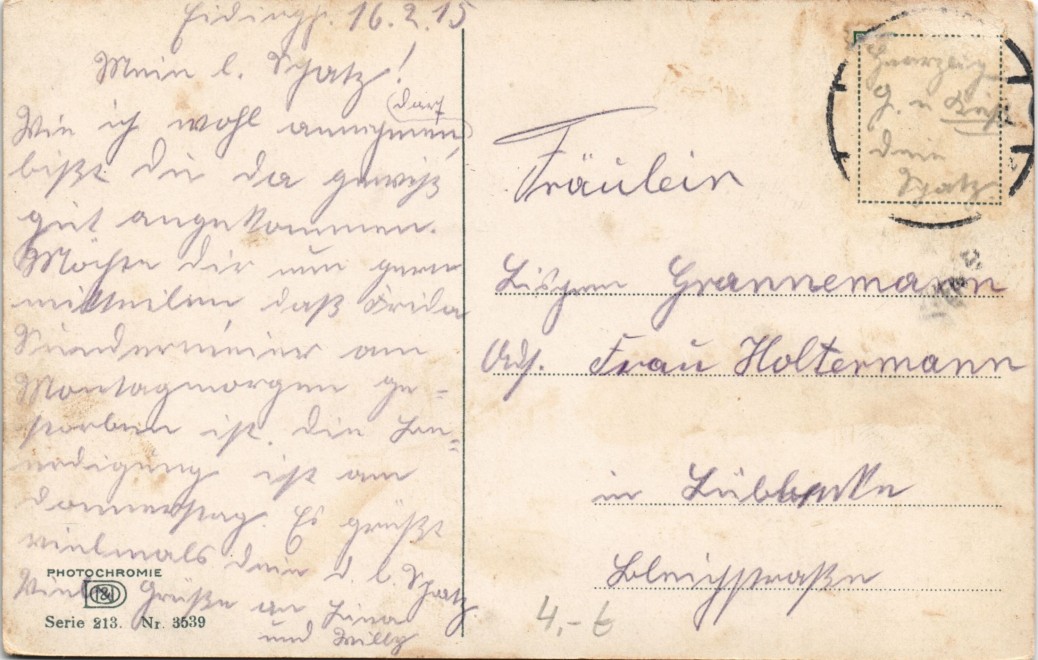 16.2.15
Mein l. Spatz!
(darf)
Wie ich wohl annehmen
bist du da gewiß
gut angekommen.
Möchte dir nun gern
mitteilen daß Frida
Sundermeier am
Montagmorgen ge-
storben ist. Die Been-
erdigung ist am
Donnerstag. Es grüßt
vielmals dein d. l. Spatz.
Viele Grüße an Lina
und Willy
PHOTOCHROMIE
Serie 213. Nr. 3539
G. u
dein
Spatz
Fräulein
Lischen Grannemann
Adr. Frau Holtermann
in Lübbecke
Bleichstraße
4,- €